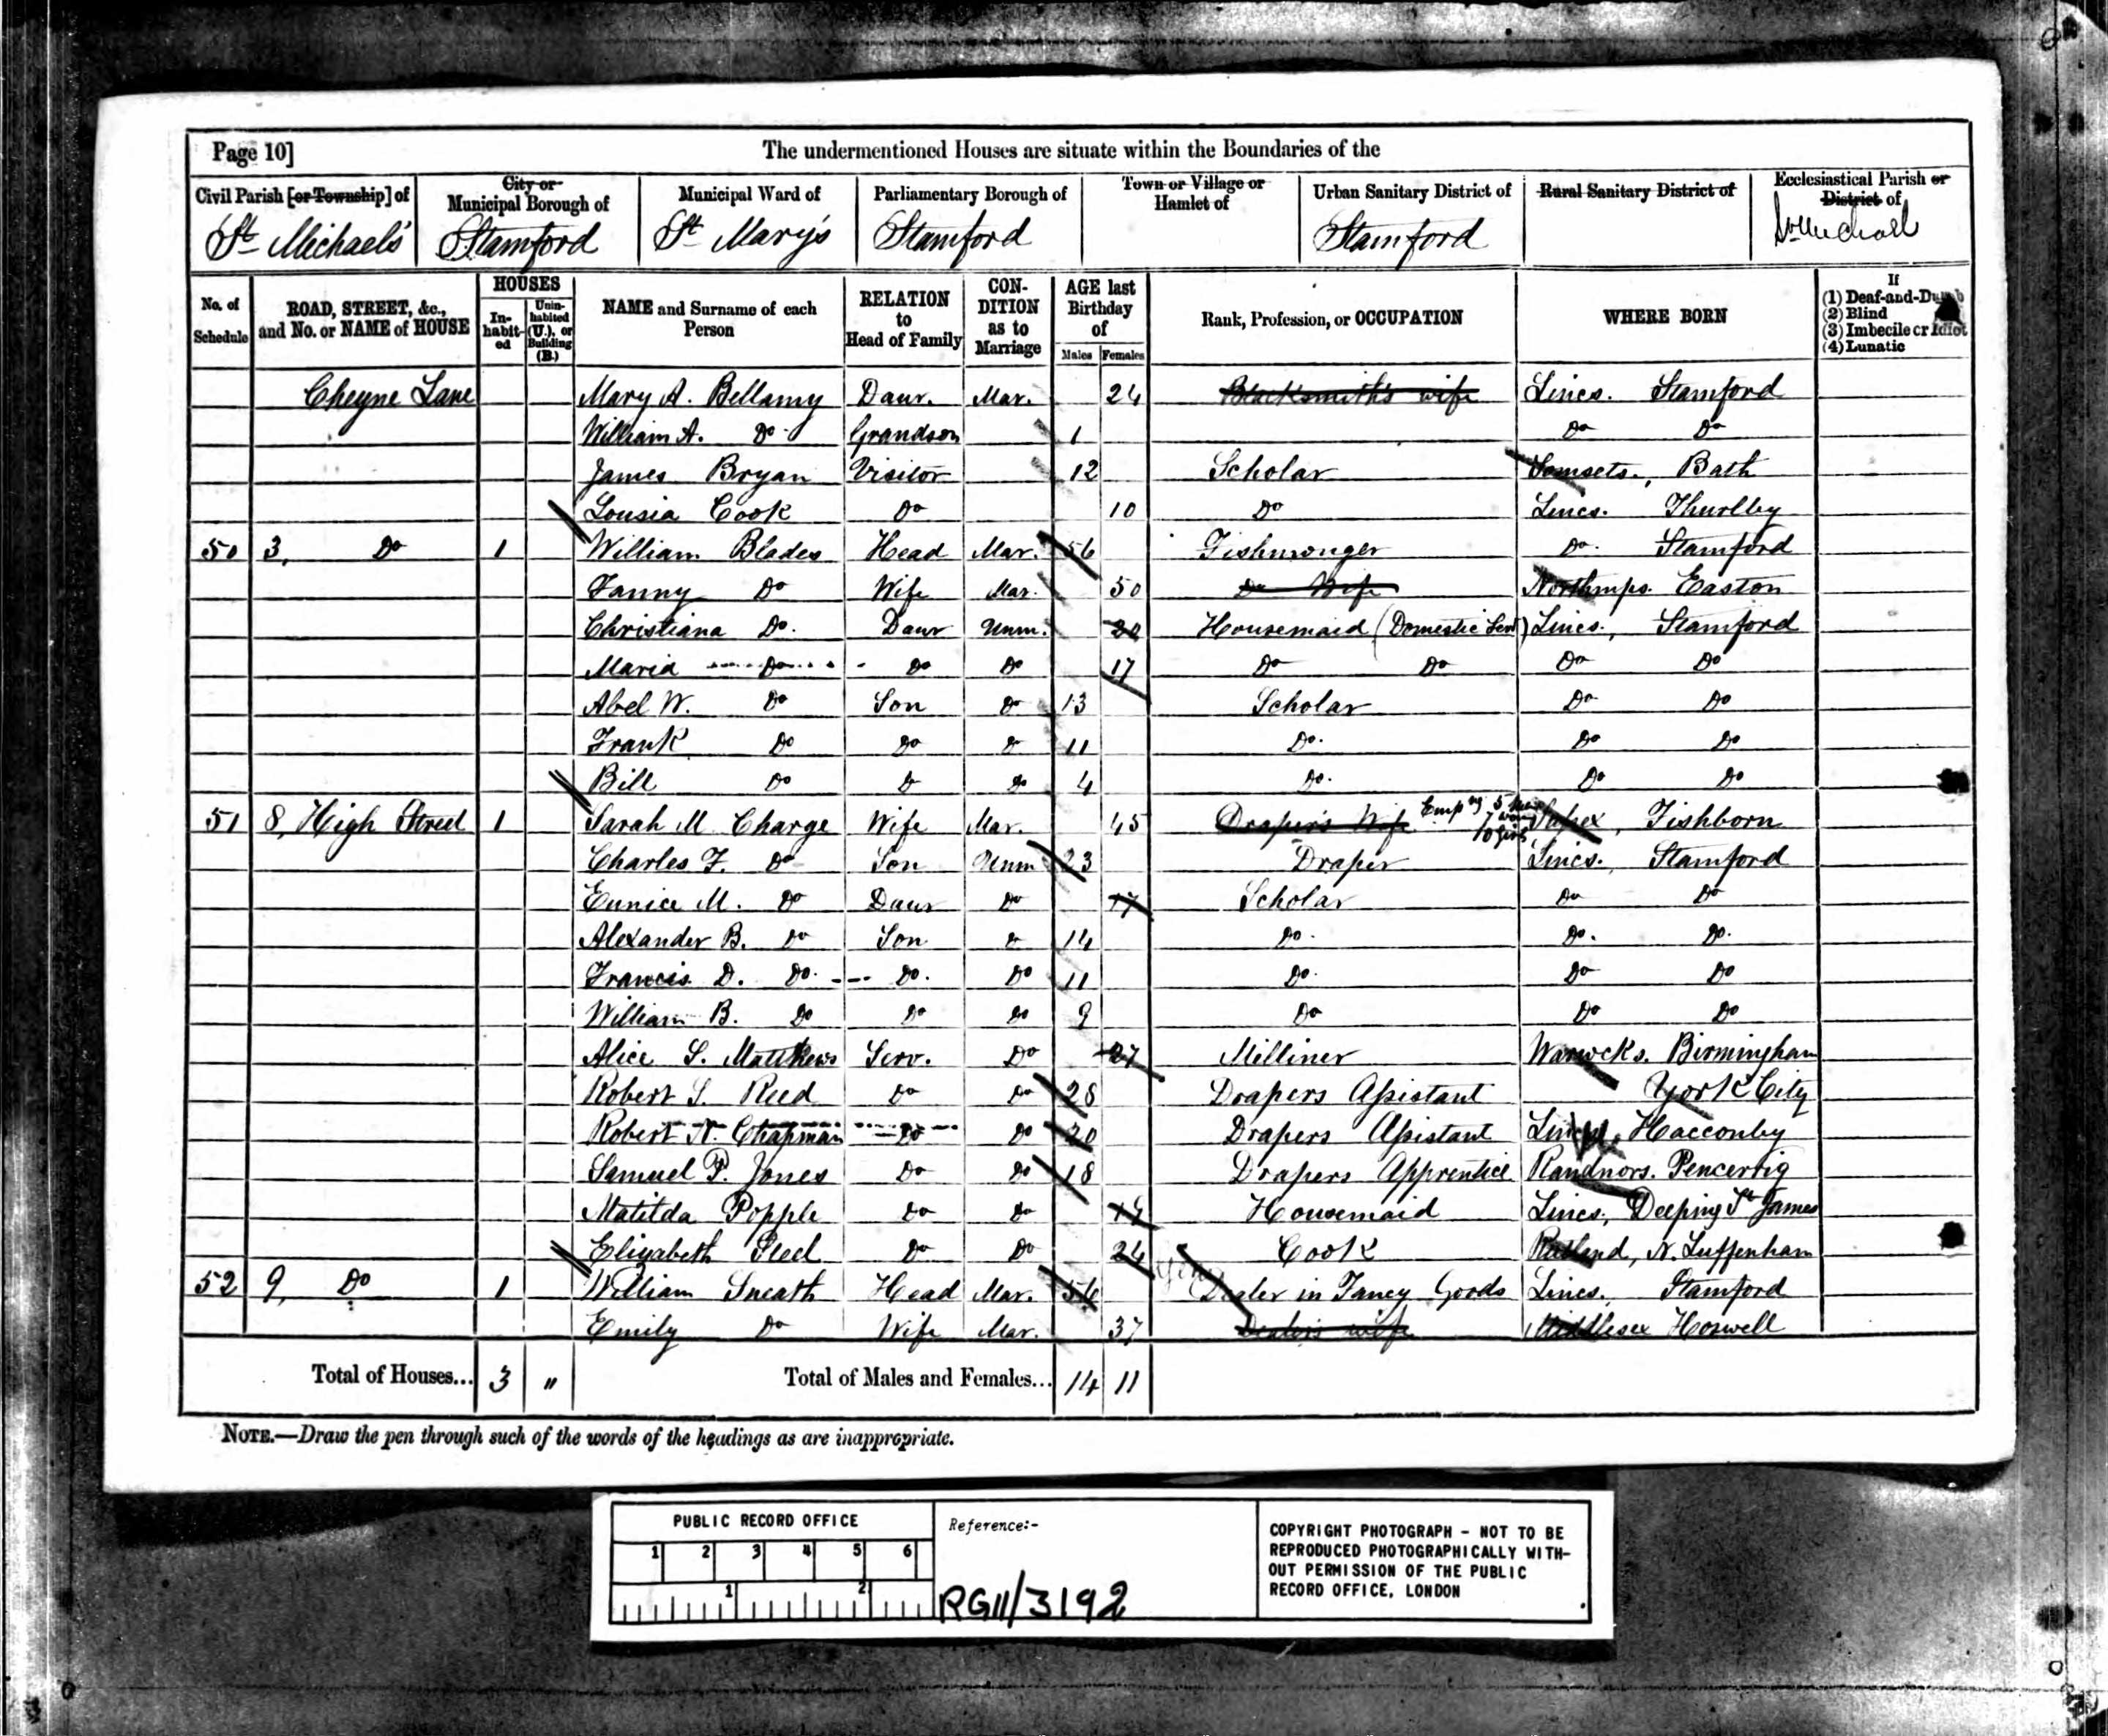 Page 10]
The undermentioned Houses are situate within the Boundaries of the
Civil Parish [or Township] of
City or Municipal Borough of
Municipal Ward of
Parliamentary Borough of
Town or Village or Hamlet of
Urban Sanitary District of
Rural Sanitary District of
Ecclesiastical Parish or District of
St Michael's
Stamford
St Mary's
Stamford
Stamford
St Michael
No. of Schedule
ROAD, STREET, &c., and No. or NAME of HOUSE
HOUSES
In-habit-ed
Unin-habited (U.), or Building (B.)
NAME and Surname of each Person
RELATION to Head of Family
CON-DITION as to Marriage
AGE last Birthday of
Males Females
Rank, Profession, or OCCUPATION
WHERE BORN
If
(1) Deaf-and-Dumb
(2) Blind
(3) Imbecile or Idiot
(4) Lunatic
Cheyne Lane Mary A. Bellamy Daur. Mar. 24 Blacksmith's wife Lincs. Stamford
William A. Do Grandson 1 Do Do
James Bryan Visitor 12 Scholar Somsets., Bath
Lousia Cook Do 10 Do Lincs. Thurlby
50 3, Do 1 William Blades Head Mar. 56 Fishmonger Do. Stamford
Fanny Do Wife Mar. 50 Do Wife Northmps. Easton
Christiana Do. Daur Unm. 20 Housemaid (Domestic Serv) Lincs., Stamford
Maria Do Do Do 17 Do Do Do Do
Abel W. Do Son Do 13 Scholar Do Do
Frank Do Do Do 11 Do. Do Do
Bill Do Do Do 4 Do. Do Do
51 8, High Street 1 Sarah M. Charge Wife Mar. 45 Draper's Wife Emp'g 5 men 7 wom 10 girls Sussex, Fishborn
Charles F. Do Son Unm 23 Draper Lincs., Stamford
Eunice M. Do Daur Do 17 Scholar Do Do
Alexander B. Do Son Do 14 Do. Do. Do.
Francis D. Do. Do. Do 11 Do. Do Do
William B. Do Do Do 9 Do Do Do
Alice S. Matthews Serv. Do 27 Milliner Warwcks. Birmingham
Robert S. Reed Do Do 28 Drapers Assistant York City
Robert N. Chapman Do Do 20 Drapers Assistant Lincs. Hacconby
Samuel P. Jones Do Do 18 Drapers Apprentice Randnors. Pencerrig
Matilda Popple Do Do 19 Housemaid Lincs., Deeping St James
Elizabeth Peel Do Do 24 Cook Rutland, N. Luffenham
52 9, Do 1 William Sneath Head Mar. 56 Dealer in Fancy Goods Lincs. Stamford
Emily Do Wife Mar. 37 Dealer's wife Middlesex Hoswell
Total of Houses... 3 " Total of Males and Females... 14 11
NOTE.—Draw the pen through such of the words of the headings as are inappropriate.
PUBLIC RECORD OFFICE
1 2 3 4 5 6
1 2
Reference:-
RG11/3192
COPYRIGHT PHOTOGRAPH - NOT TO BE
REPRODUCED PHOTOGRAPHICALLY WITH-
OUT PERMISSION OF THE PUBLIC
RECORD OFFICE, LONDON